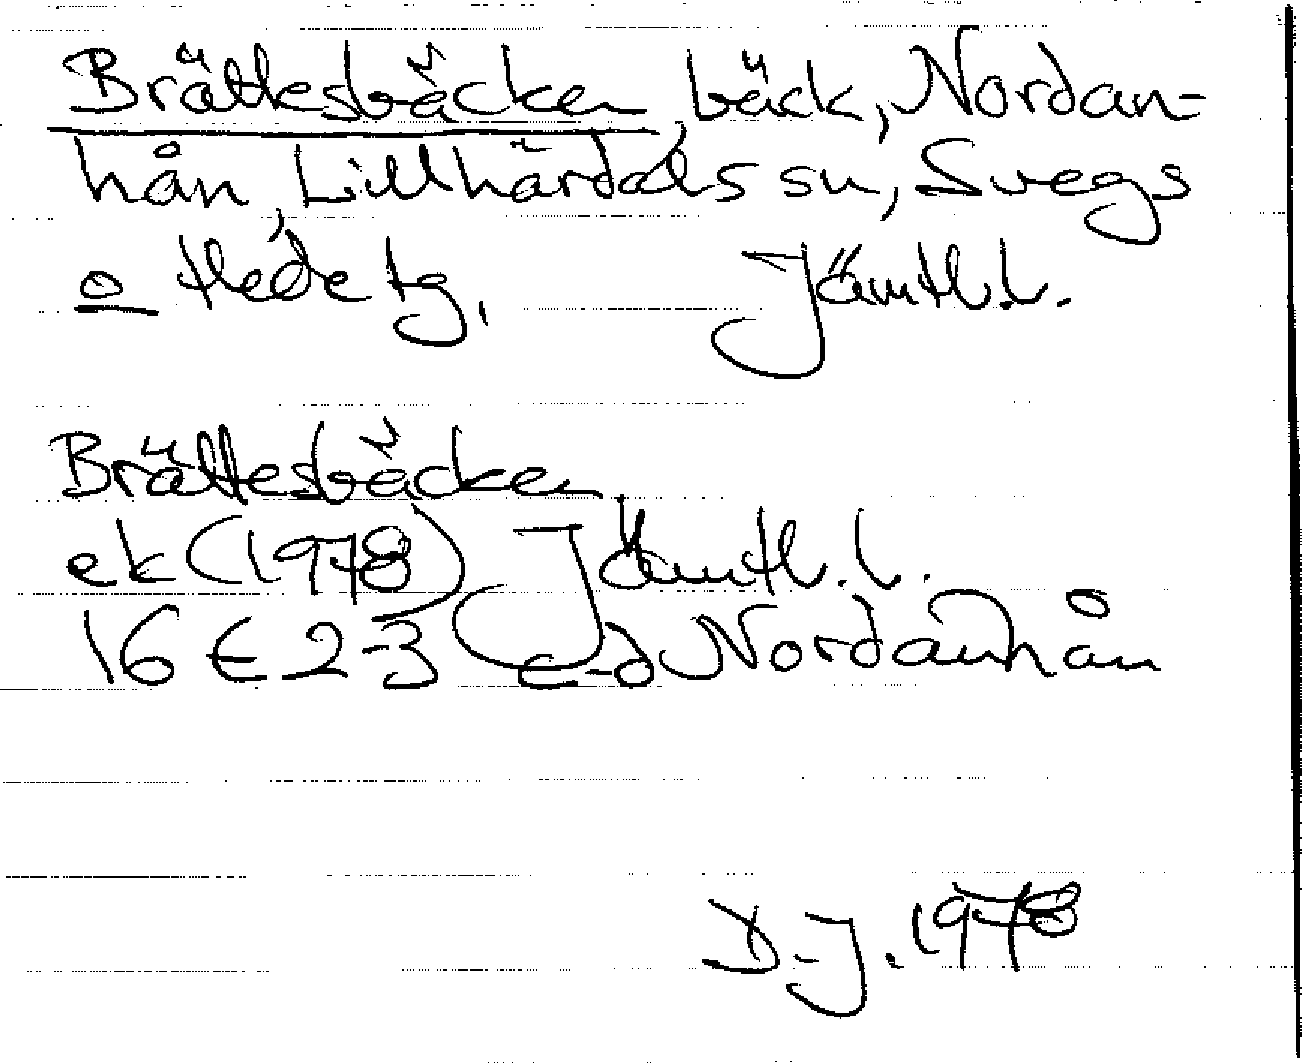 Brättesbäcken, bäck, Nordan-
hån, Lillhärdals sn, Svegs
o Hede tg, Jämtl.l.
Brättesbäcken
ek (1978) Jämtl. l.
16 E 2-3 c-d Nordanhån
D-J. 1978